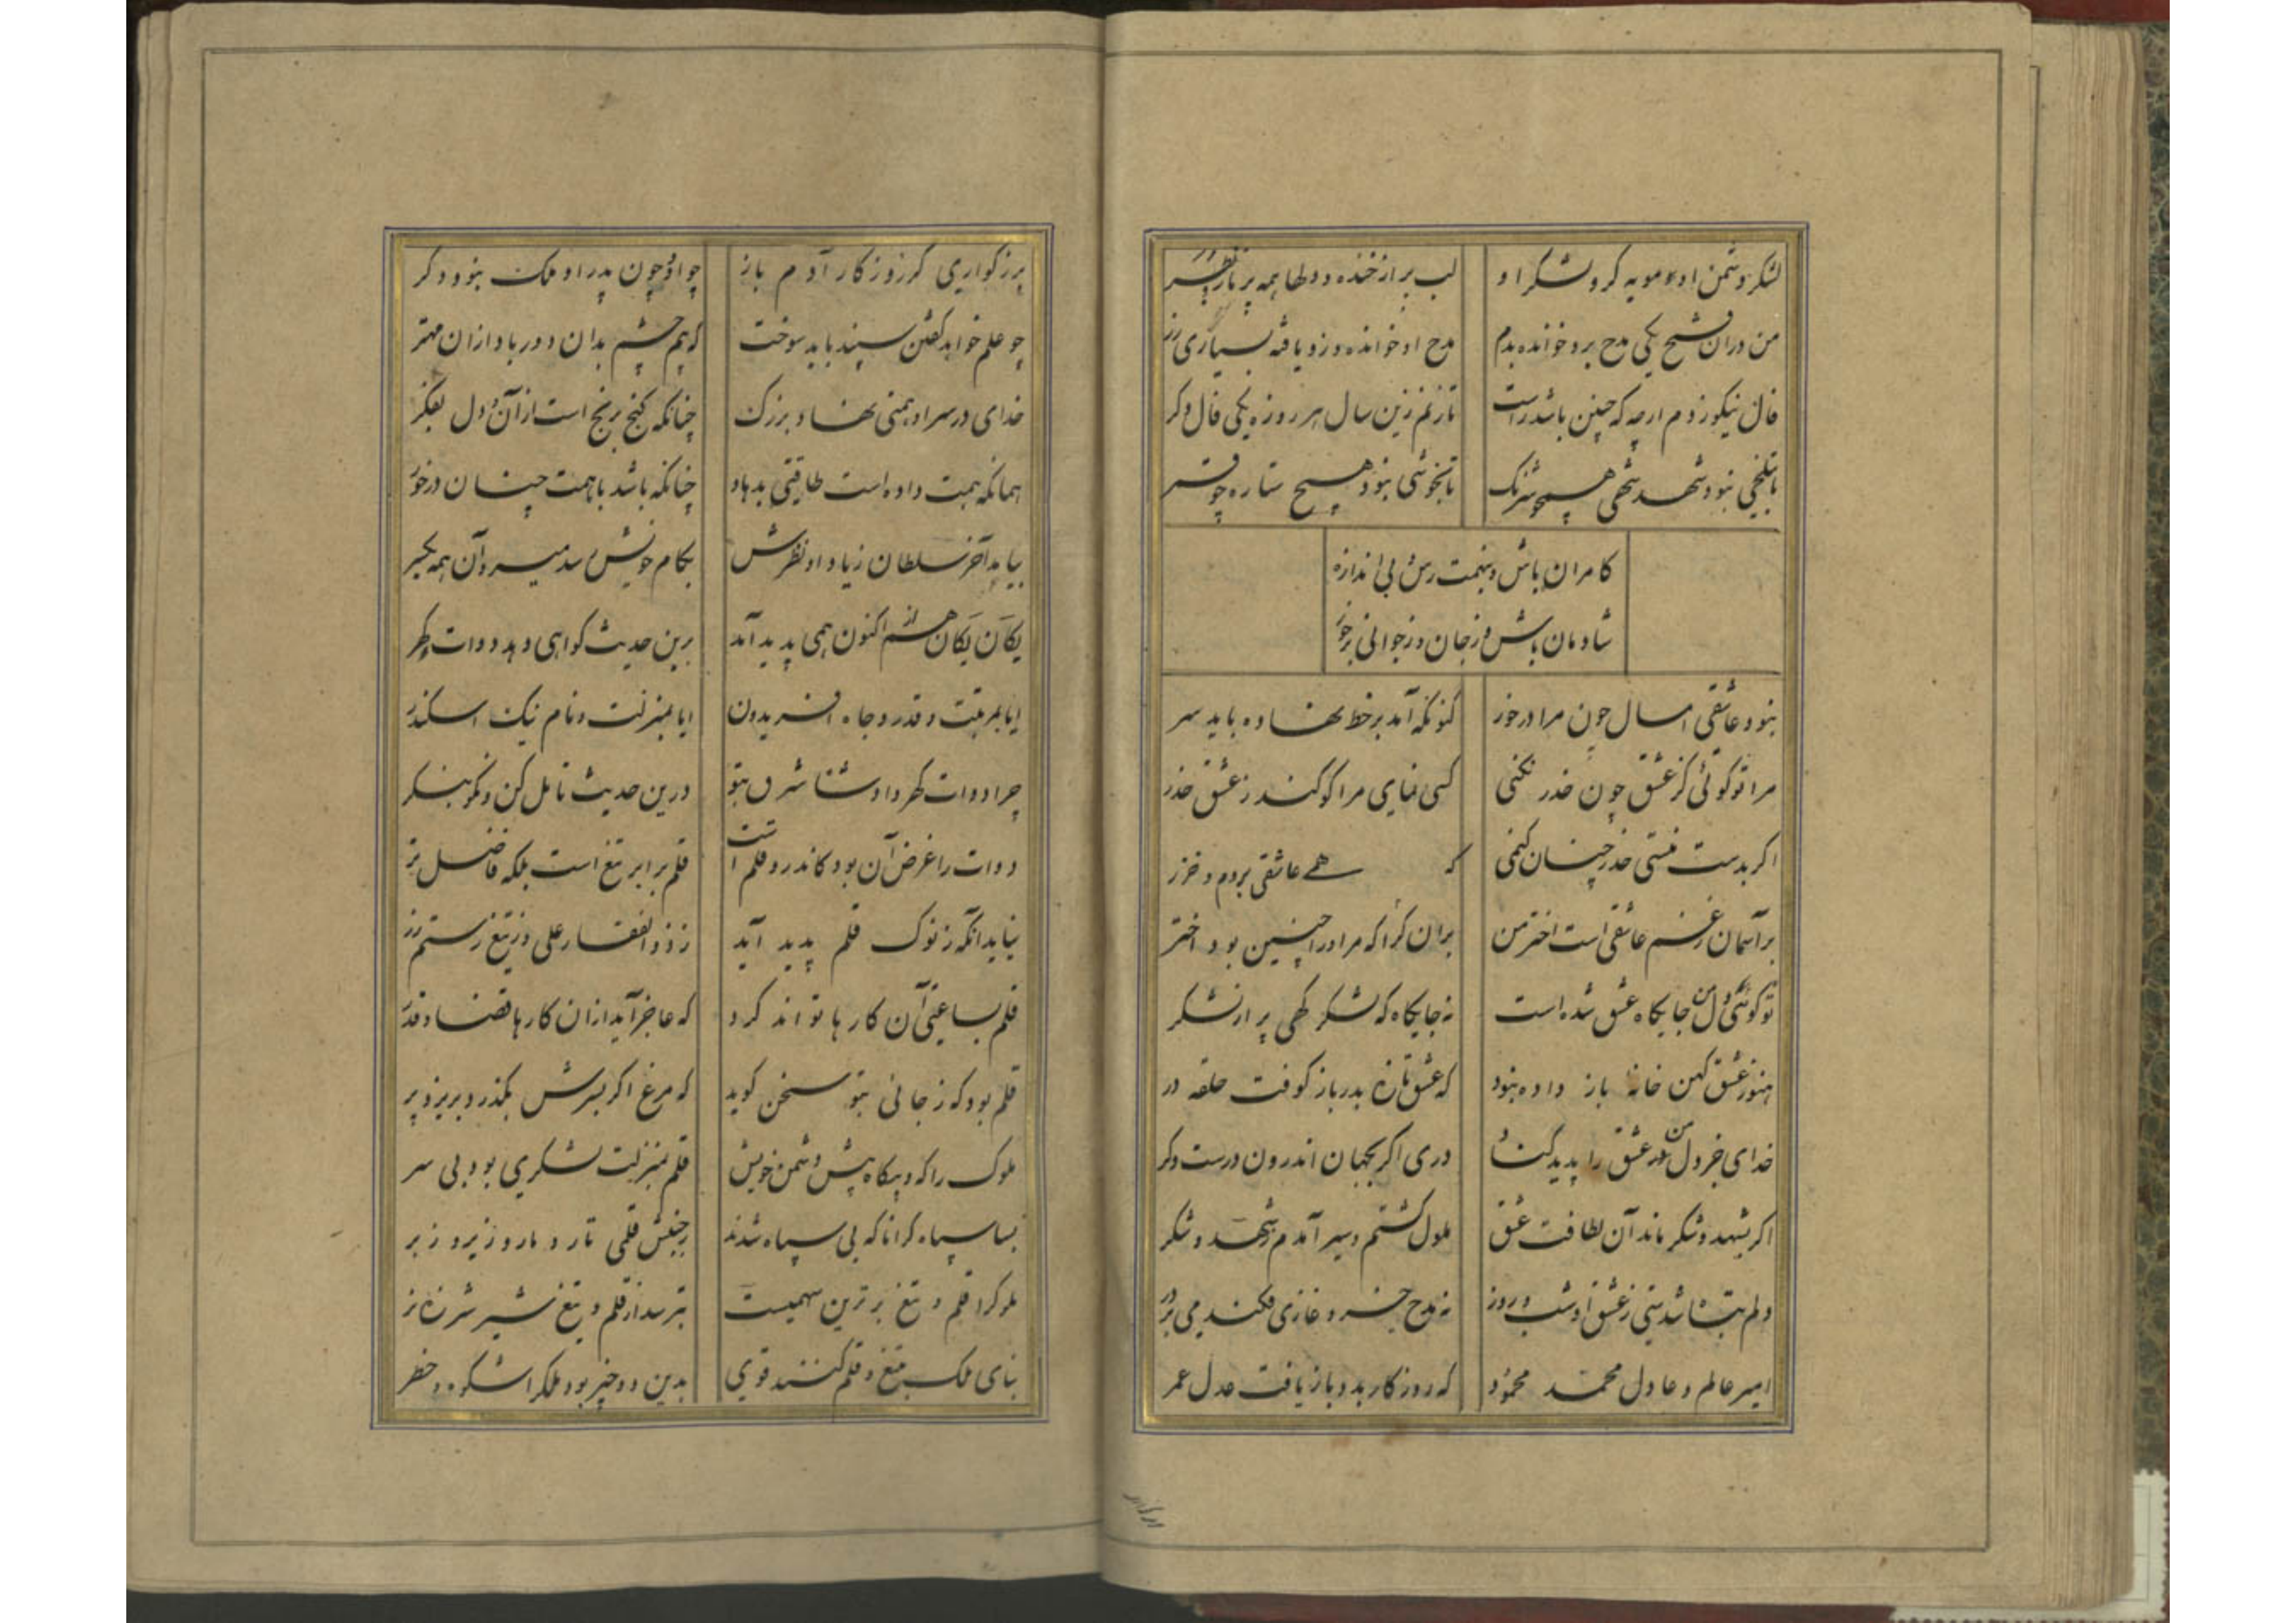 لشکر دشمن او مویه کر و لشکر او
لب پر از خنده و دلها همه پر ناز و بطر
من در ان فتح یکی مدح برو خوانده بدم
مدح او خوانده و زو یافته بسیاری زر
فال نیکو زدم ار چه که چنین باشد راست
تا زنم زین سال هر روزه یکی فال دکر
تا بتلخی نبود شهد شهی همچو شرنک
تا بخوشی نبود هیچ ستاره چو قمر
کامران باش و بنهمت رس بی اندازه
شادمان باش و ز جان و ز جوانی برخور
نبود عاشقی امسال چون مرا در خور
کنونکه آمد بر خط نهاده باید سر
مرا تو کوئی کز عشق چون حذر نکنی
کسی نمای مرا کو کند ز عشق حذر
اکر بدست منستی حذر چنان کنمی
که هے عاشقی بروم و خزر
بر آسمان ز غم عاشقی است اختر من
بران کرا که مرا در چنین بود اختر
تو کوئی دل من جایکاه عشق شده است
نه جایکاه که لشکر کهی پر از لشکر
هنوز عشق کهن خانه باز داده نبود
که عشق تازه بدر باز کوفت حلقه در
خدای جز دل من در عشق را پدید کناد
دری اکر بجهان اندرون درست دکر
اکر بشهد و شکر ماند آن لطافت عشق
ملول کشتم و سیر آمدم ز شهد و شکر
دلم نتباشدیتی ز عشق او شب و روز
نه مدح خسرو غازی فکندمی بر در
امیر عالم و عادل محمد محمود
که روزکار بدو باز یافت عدل عمر
بزرکواری کز روزکار آدم باز
چو او و چون پدر او ملک نبود دکر
چو علم خواهد کفتن سپند باید سوخت
که چشم بدان دور باد ازان مهتر
خدای در سر او همتی نهاد بزرک
چنانکه کنج برنج است از آن و دل بفکر
همانکه همت داده است طاقتی بدهاد
چنانکه باشد با همت چنان در خور
بیابد آخر سلطان زیاد او نظرش
بکام خویش رسد میر و آن همه یکسر
یکان یکان همه اکنون همی پدید آمد
برین حدیث کواهی دهد دوات و کهر
ایا بمرتبت و قدر و جاه افریدون
ایا بمنزلت و نام نیک اسکندر
چرا دوات کهر داد شاه شرق بتو
درین حدیث تامل کن و نکو بنکر
دوات را غرض آن بود کاندرو قلم است
قلم برابر تیغ است بلکه فاضل تر
نیاید انکه ز نوک قلم پدید آید
ز ذوالفقار علی وز تیغ رستم زر
قلم بساعتی آن کارها تواند کرد
که عاجز آید ازان کارها قضا و قدر
قلم بود که ز جائی بتو سخن کوید
که مرغ اکر بسرش بکذرد بریزد پر
ملوک را که و بیکاه پیش دشمن خویش
قلم بمنزلت لشکری بود بی سر
بسا سپاه کرانا که بی سپاه شدند
ز جنبش قلمی تار و مار و زیر و زبر
ملوکرا قلم و تیغ برترین سپهیست
بترسد از قلم و تیغ شیر شرزه نر
بنای ملک بتیغ و قلم کنند قوی
بدین دو چیز بود ملکرا شکوه و خطر